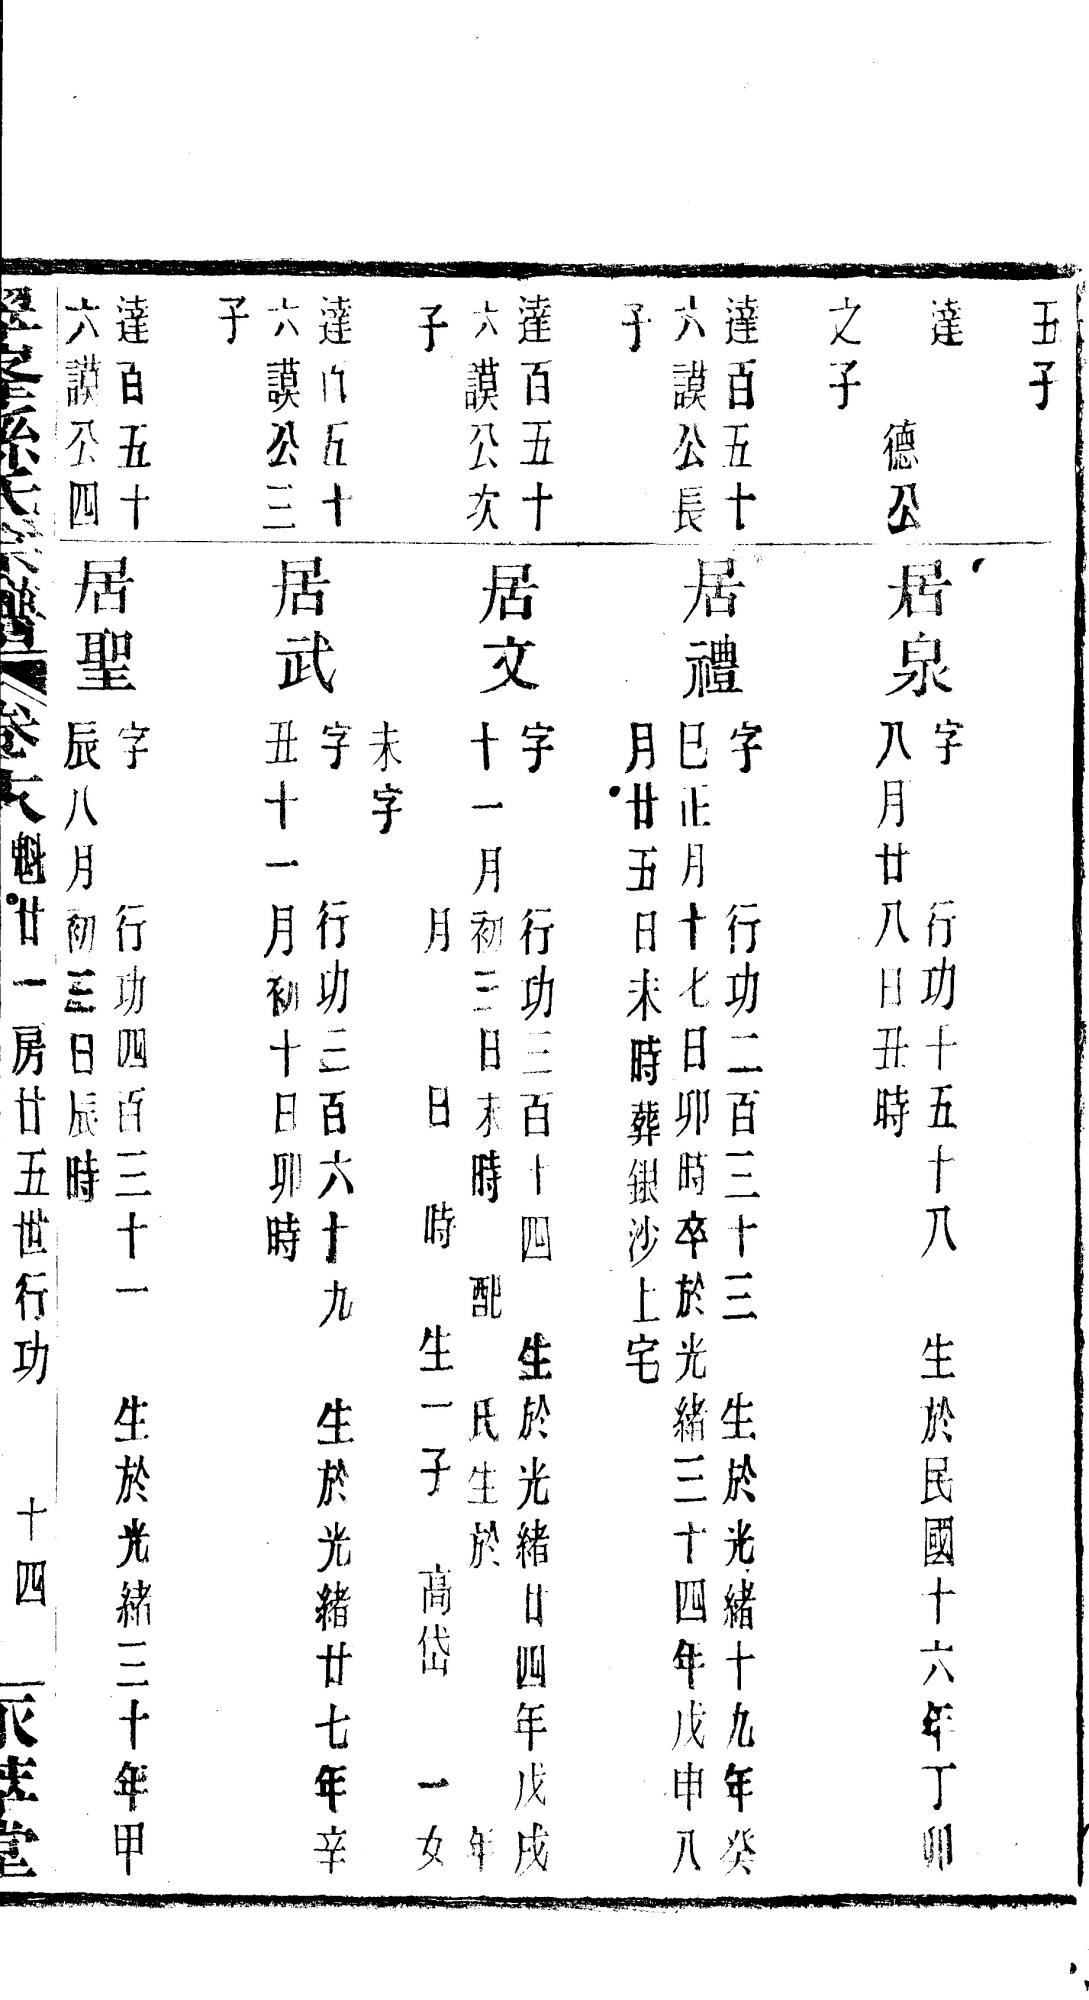 五子
達　德公
之子
居泉
字　行功十五十八　生於民國十六年丁卯
八月廿八日丑時
達百五十
六謨公長
子
居禮
字　行功二百三十三　生於光緒十九年癸
巳正月十七日卯時卒於光緒三十四年戊申八
月廿五日未時葬銀沙上宅
達百五十
六謨公次
子
居文
字　行功三百十四　生於光緒廿四年戊戌
十一月初三日未時　配　氏生於　年
月　日　時　生一子　高岱　一女
未字
達百五十
六謨公三
子
居武
字　行功三百六十九　生於光緒廿七年辛
丑十一月初十日卯時
達百五十
六謨公四
居聖
字　行功四百三十一　生於光緒三十年甲
辰八月初三日辰時
孫氏宗譜　卷　魁廿一房廿五世行功　十四　堂